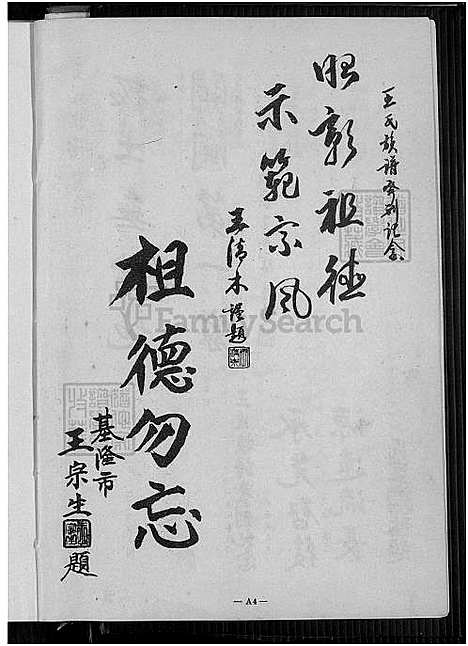 王氏族譜發刊記念
昭彰祖德
示範宗風
王清木 謹題
祖德勿忘
基隆市
王宗生 題
FamilySearch
— A4 —